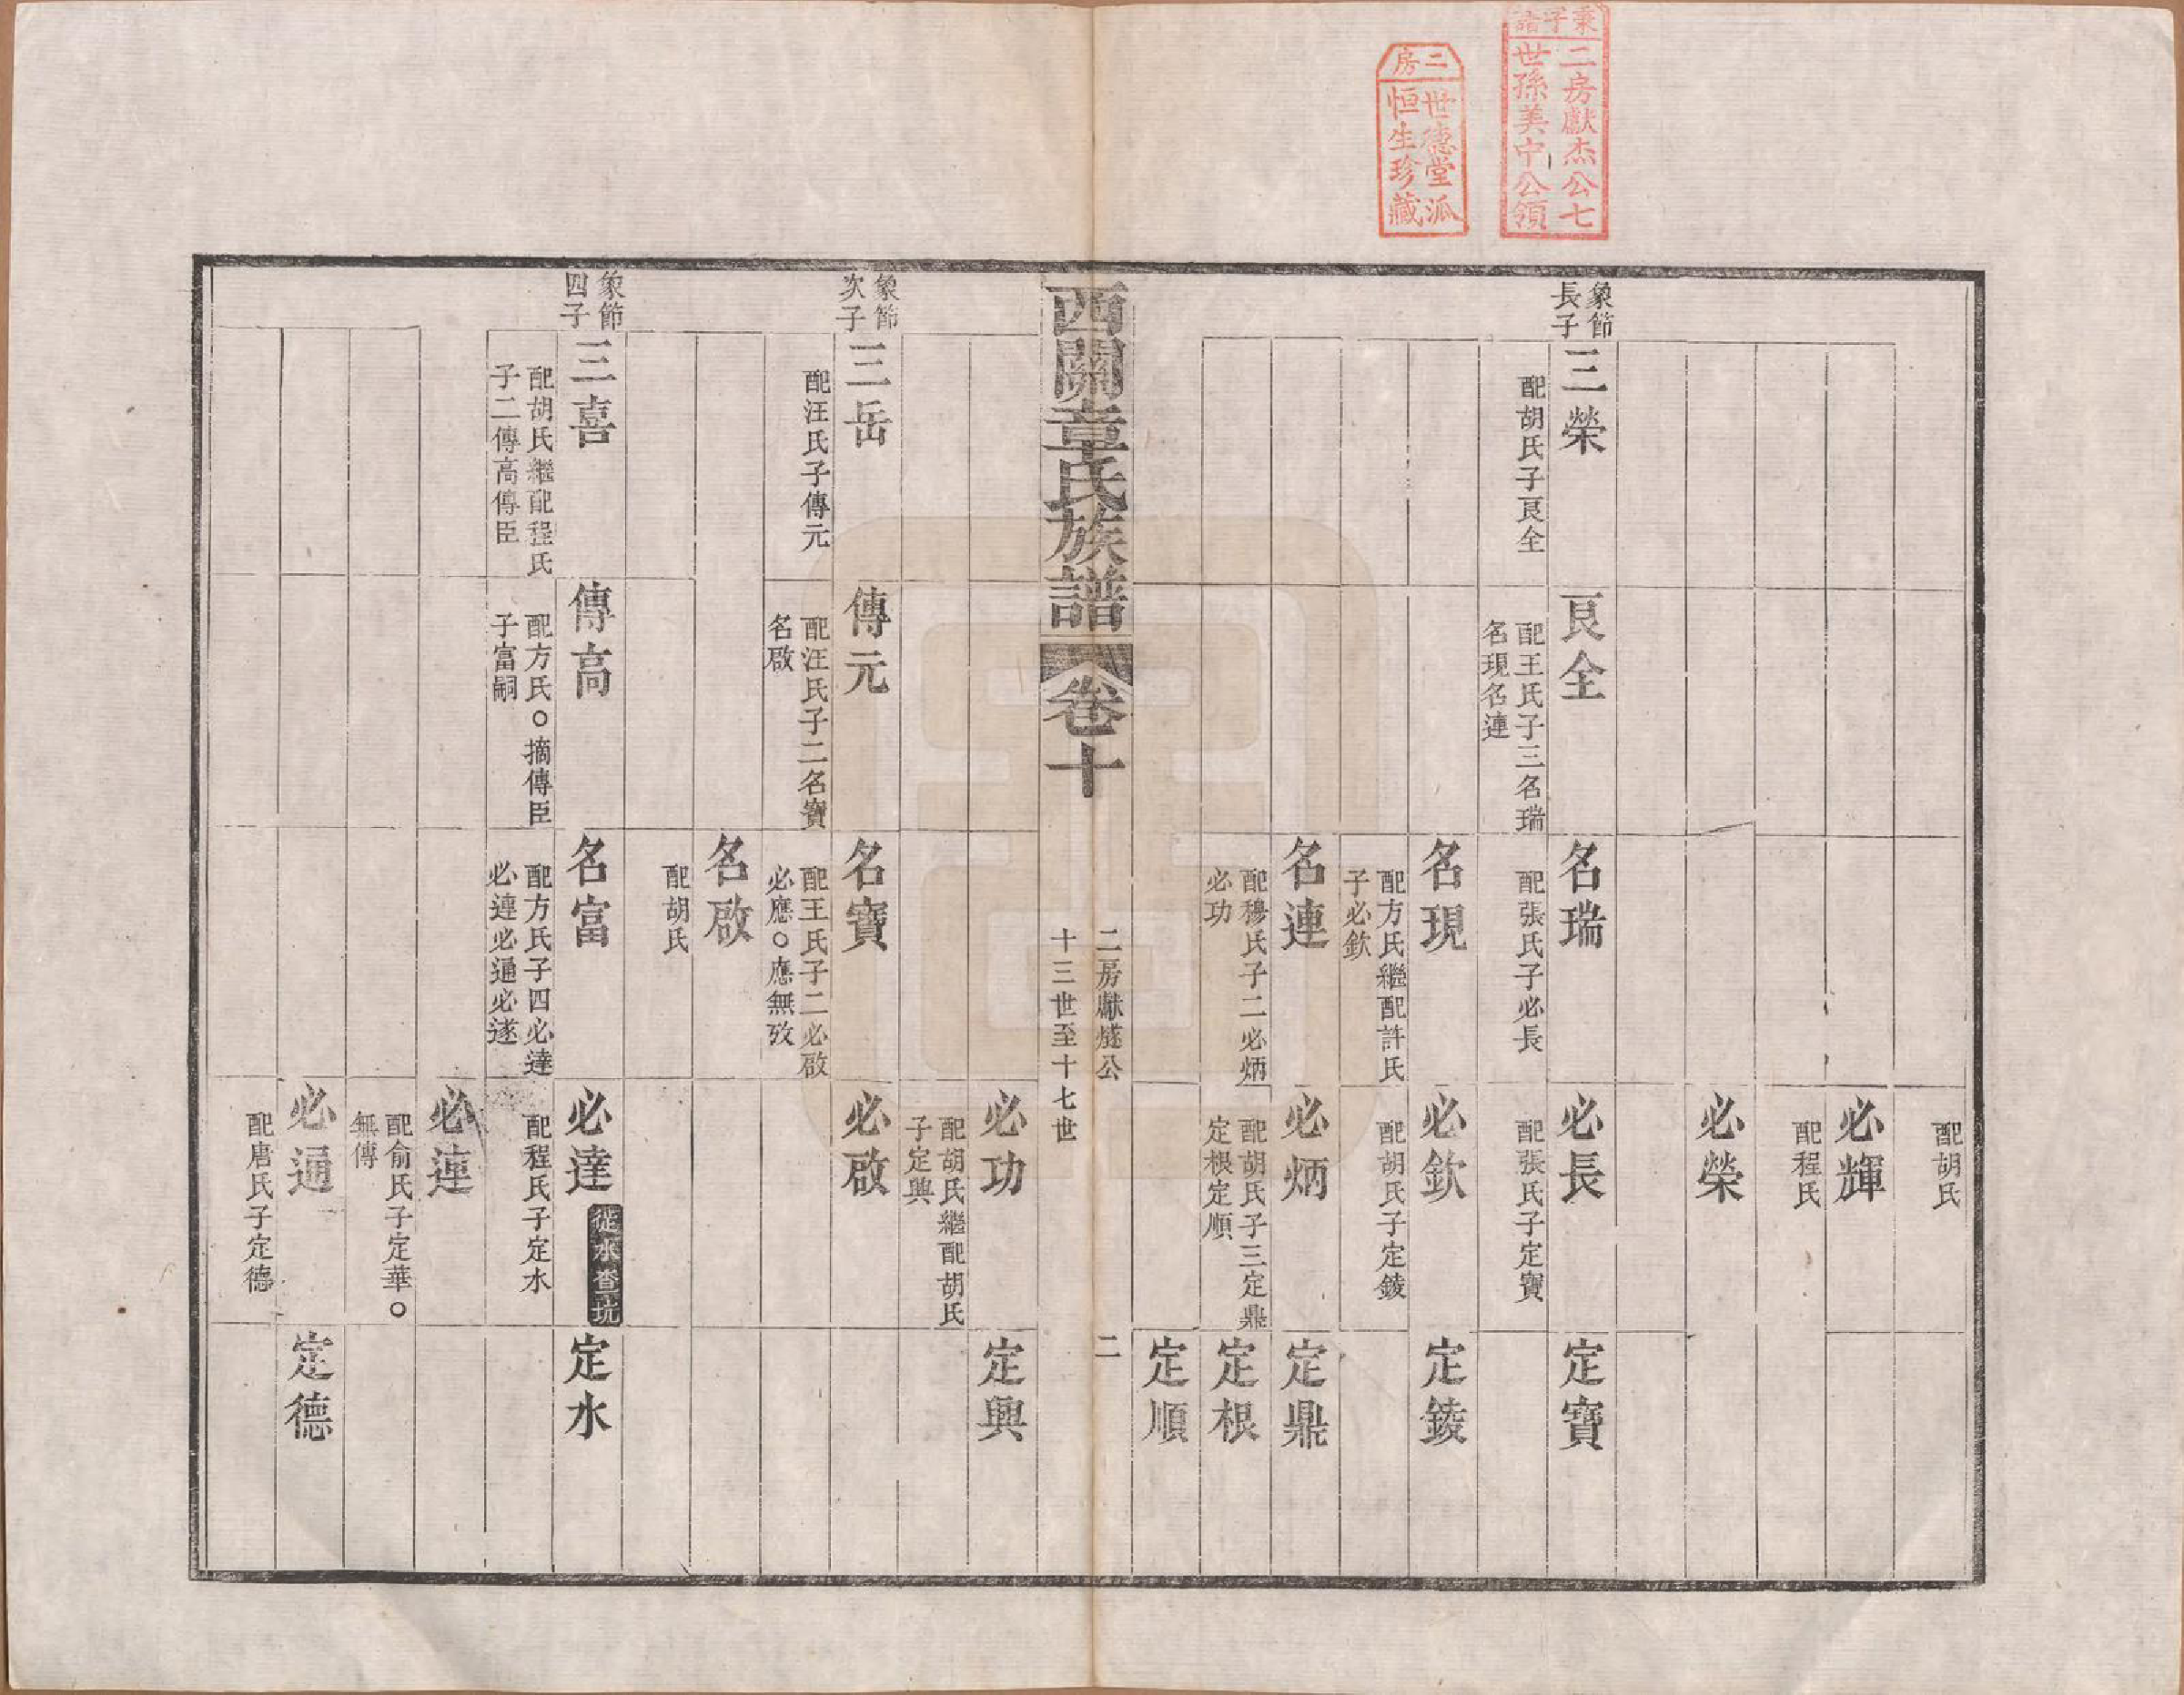 秉子諧
二房獻杰公七
世孫美中公領
二房
世德堂派
恒生珍藏
配胡氏
必輝
配程氏
必榮
象節
長子
三榮
配胡氏子良全
良全
配王氏子三名瑞
名現名連
名瑞
配張氏子必長
必長
配張氏子定寶
定寶
名現
配方氏繼配許氏
子必欽
必欽
配胡氏子定錂
定錂
名連
配穆氏子二必炳
必功
必炳
配胡氏子三定鼎
定根定順
定鼎
定根
定順
西關章氏族譜
卷十
二房獻燧公
十三世至十七世
二
必功
配胡氏繼配胡氏
子定興
定興
象節
次子
三岳
配汪氏子傳元
傳元
配汪氏子二名寶
名啟
名寶
配王氏子二必啟
必應○應無攷
必啟
名啟
配胡氏
象節
四子
三喜
配胡氏繼配程氏
子二傳高傳臣
傳高
配方氏○摘傳臣
子富嗣
名富
配方氏子四必達
必連必通必遂
必達
徙水查坑
配程氏子定水
定水
必連
配俞氏子定華○
無傳
必通
配唐氏子定德
定德